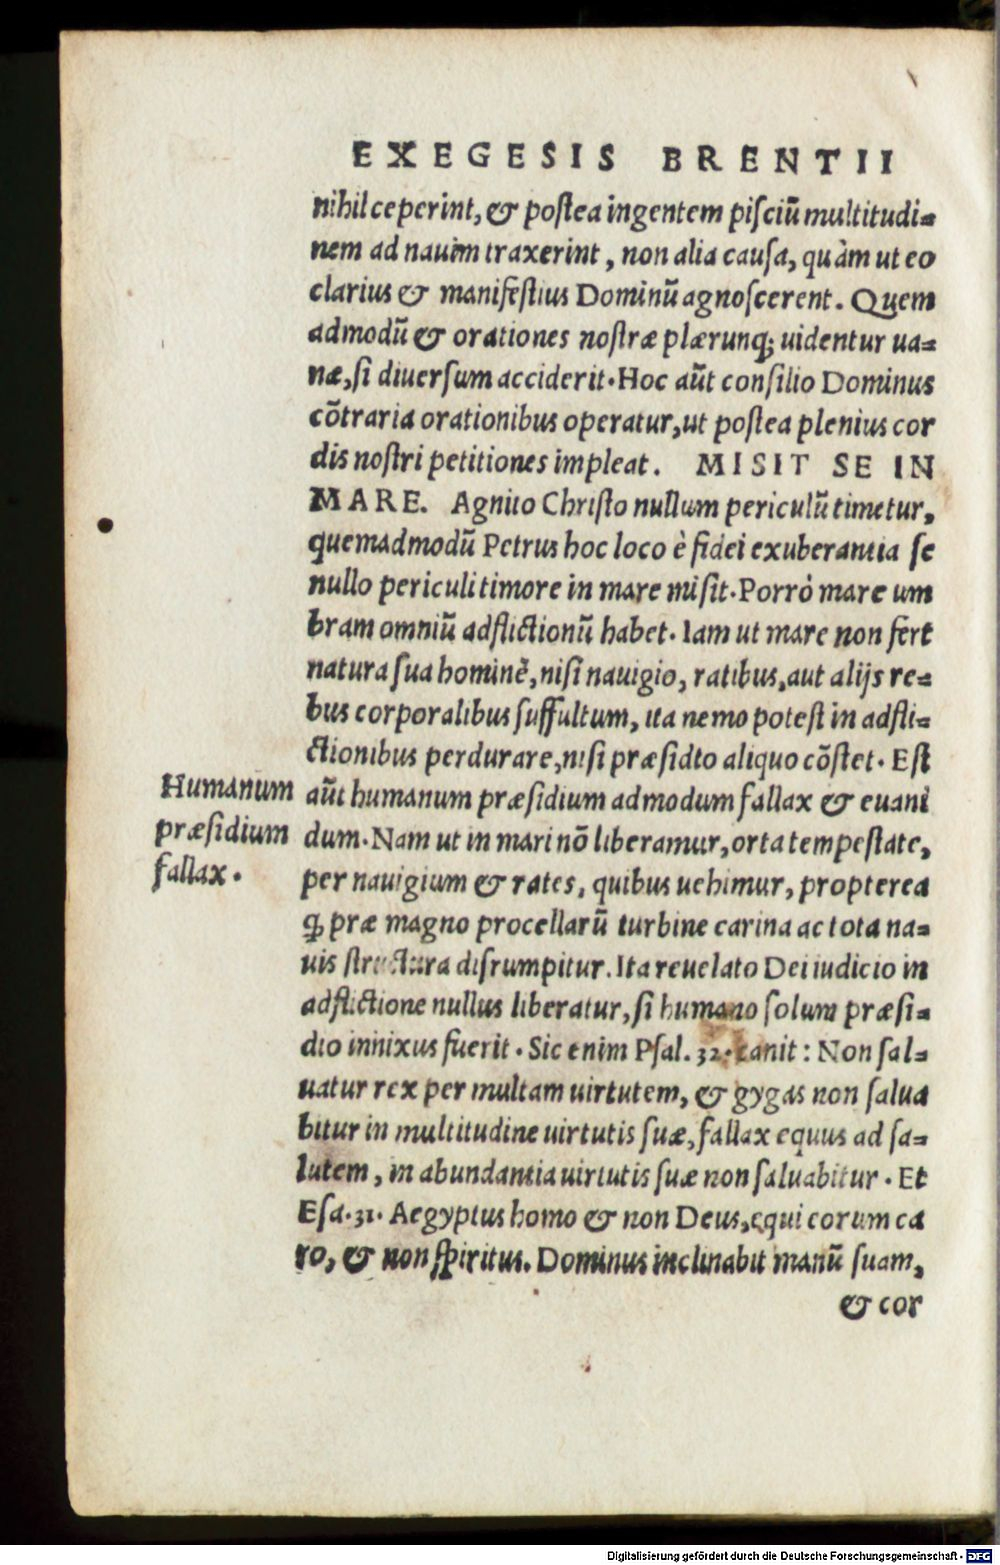 EXEGESIS BRENTII
nihil ceperint, & postea ingentem pisciũ multitudi=
nem ad nauim traxerint, non alia causa, quàm ut eo
clarius & manifestius Dominũ agnoscerent. Quem
admodũ & orationes nostræ plærunq; uidentur ua=
næ, si diuersum acciderit. Hoc aũt consilio Dominus
cõtraria orationibus operatur, ut postea plenius cor
dis nostri petitiones impleat. MISIT SE IN
MARE. Agnito Christo nullum periculũ timetur,
quemadmodũ Petrus hoc loco è fidei exuberantia se
nullo periculi timore in mare misit. Porrò mare um
bram omniũ adflictionũ habet. Iam ut mare non fert
natura sua hominẽ, nisi nauigio, ratibus, aut alijs re=
bus corporalibus suffultum, ita nemo potest in adfli=
ctionibus perdurare, nisi præsidio aliquo cõstet. Est
Humanum
præsidium
fallax.
aũt humanum præsidium admodum fallax & euani
dum. Nam ut in mari nõ liberamur, orta tempestate,
per nauigium & rates, quibus uehimur, propterea
ꝙ præ magno procellarũ turbine carina ac tota na=
uis structura disrumpitur. Ita reuelato Dei iudicio in
adflictione nullus liberatur, si humano solum præsi=
dio innixus fuerit. Sic enim Psal. 32. canit: Non sal=
uatur rex per multam uirtutem, & gygas non salua
bitur in multitudine uirtutis suæ, fallax equus ad sa=
lutem, in abundantia uirtutis suæ non saluabitur. Et
Esa. 31. Aegyptus homo & non Deus, equi eorum ca
ro, & non spiritus. Dominus inclinabit manũ suam,
& cor
Digitalisierung gefördert durch die Deutsche Forschungsgemeinschaft - DFG